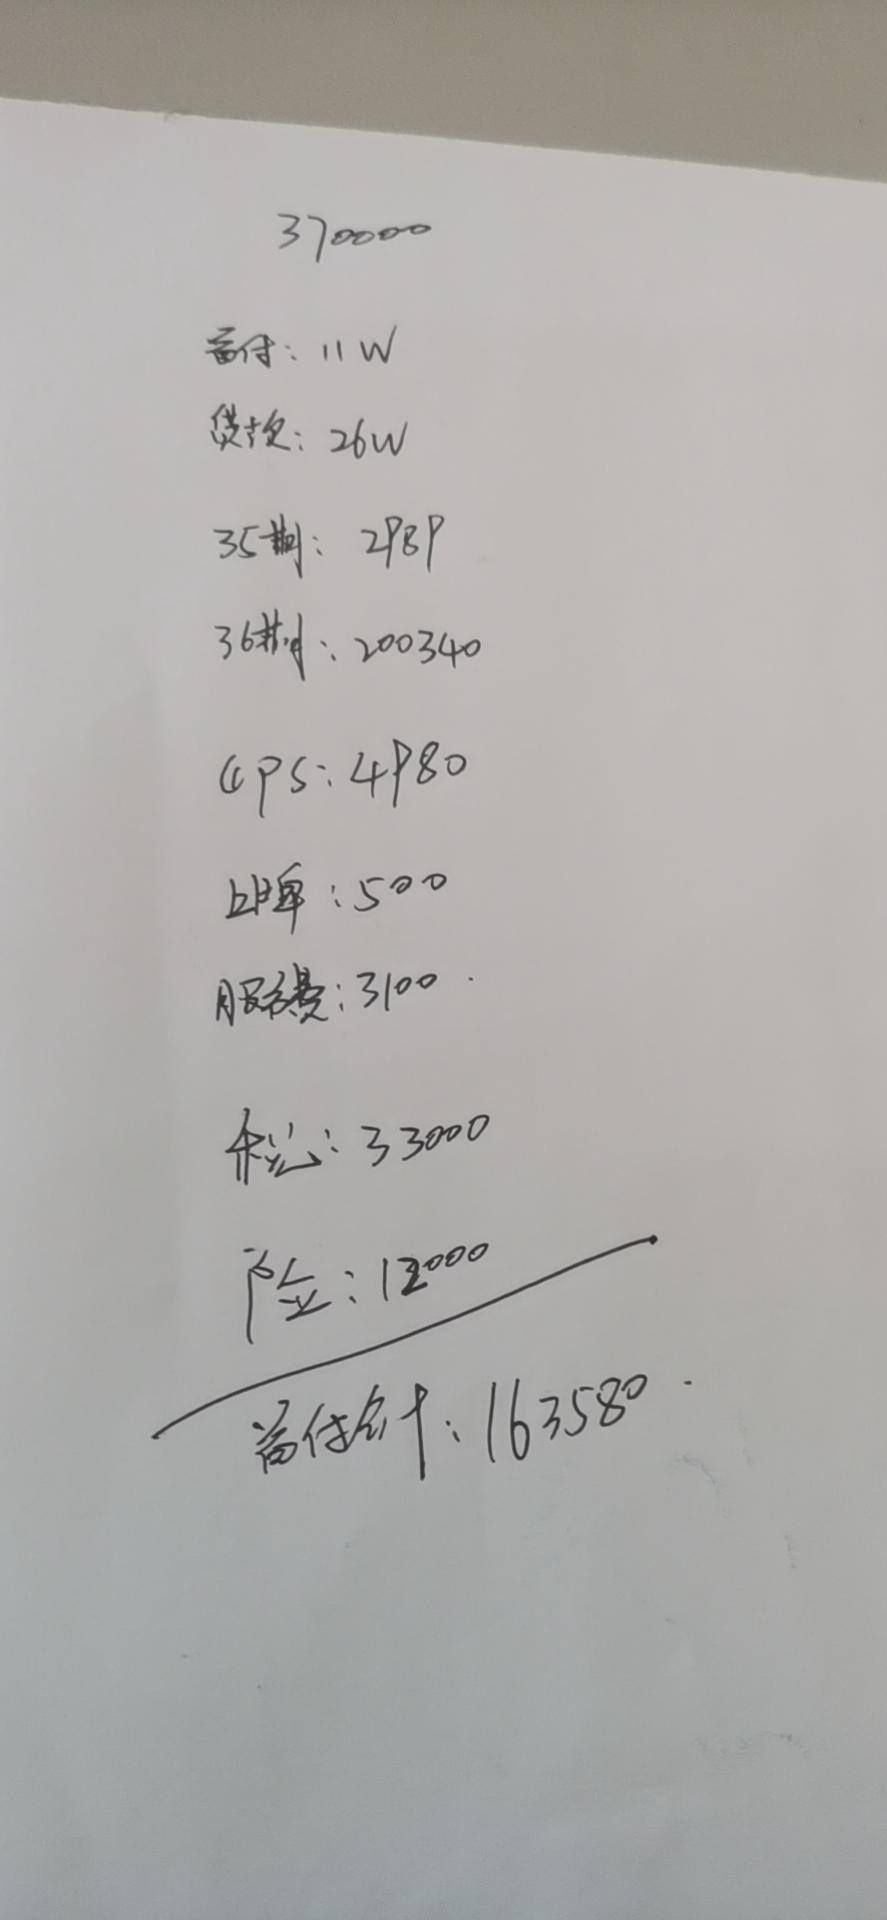 370000
首付：11W
贷款：26W
35期：2989
36期：200340
GPS：4980
上牌：500
服务费：3100
税：33000
险：12000
首付合计：163580